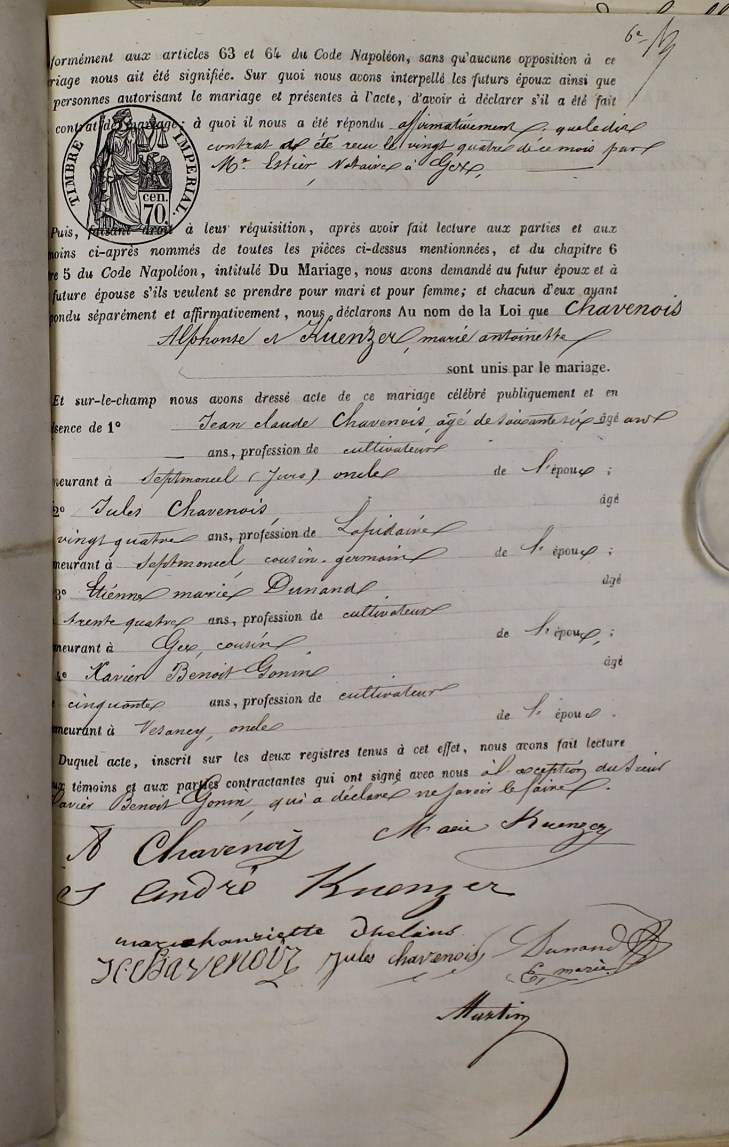 6e
formément aux articles 63 et 64 du Code Napoléon, sans qu'aucune opposition à ce
riage nous ait été signifiée. Sur quoi nous avons interpellé les futurs époux ainsi que
personnes autorisant le mariage et présentes à l'acte, d'avoir à déclarer s'il a été fait
contrat de mariage : à quoi il nous a été répondu affirmativement, que le dit
contrat a été reçu le vingt quatre de ce mois par
Mr. Estier, Notaire à Gex.
TIMBRE IMPÉRIAL.
cen.
70.
Puis, faisant droit à leur réquisition, après avoir fait lecture aux parties et aux
moins ci-après nommés de toutes les pièces ci-dessus mentionnées, et du chapitre 6
re 5 du Code Napoléon, intitulé Du Mariage, nous avons demandé au futur époux et à
future épouse s'ils veulent se prendre pour mari et pour femme; et chacun d'eux ayant
pondu séparément et affirmativement, nous déclarons Au nom de la Loi que Chavenois
Alphonse et Kuenzer, marie antoinette
sont unis par le mariage.
Et sur-le-champ nous avons dressé acte de ce mariage célébré publiquement et en
ésence de 1° Jean claude Chavenois, âgé de soixante six âgé ans
ans, profession de cultivateur
meurant à Septmoncel (Jura) oncle de l'époux ;
2° Jules Chavenois âgé
vingt quatre ans, profession de Lapidaire
meurant à Septmoncel cousin-germain de l'époux ;
3° Etienne marie Dunand âgé
trente quatre ans, profession de cultivateur
meurant à Gex, cousin de l'époux, ;
4° Xavier Benoit Gonin âgé
cinquante ans, profession de cultivateur
meurant à Vesancy, oncle de l'époux.
Duquel acte, inscrit sur les deux registres tenus à cet effet, nous avons fait lecture
ux témoins et aux parties contractantes qui ont signé avec nous à l'exception du Sieur
Xavier Benoit Gonin, qui a déclaré ne savoir le faire.
A Chavenois Marie Kuenzer
J André Kuenzer
marie henriette
JC Chavenoix Jules Chavenois Dunand
Et marie
Martin